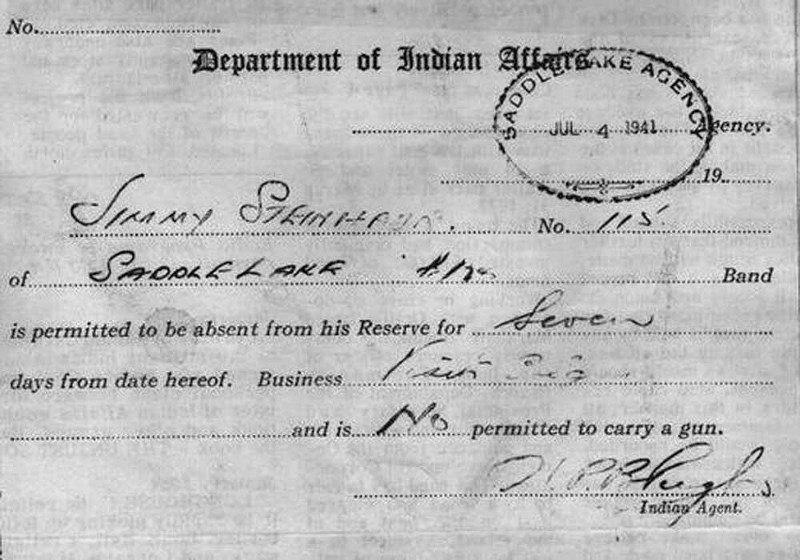 No.
Department of Indian Affairs
SADDLE LAKE AGENCY
JUL 4 1941
Agency.
19
JIMMY STEINHAUR. No. 115
of SADDLE LAKE Band
is permitted to be absent from his Reserve for Seven
days from date hereof. Business Visit
and is No permitted to carry a gun.
Indian Agent.